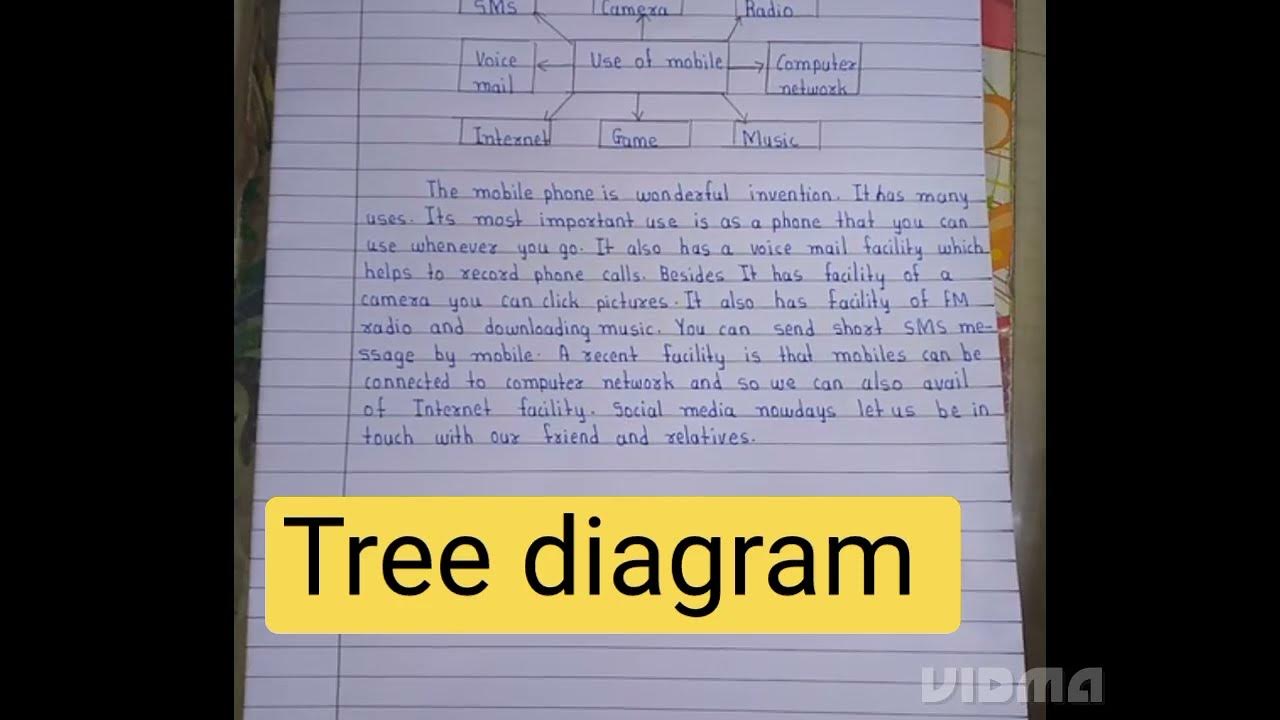 SMS Camera Radio
Voice mail Use of mobile Computer network
Internet Game Music
The mobile phone is wonderful invention. It has many
uses. Its most important use is as a phone that you can
use whenever you go. It also has a voice mail facility which
helps to record phone calls. Besides It has facility of a
camera you can click pictures. It also has facility of FM
radio and downloading music. You can send short SMS me-
ssage by mobile. A recent facility is that mobiles can be
connected to computer network and so we can also avail
of Internet facility. Social media nowdays let us be in
touch with our friend and relatives.
Tree diagram
VIDMA